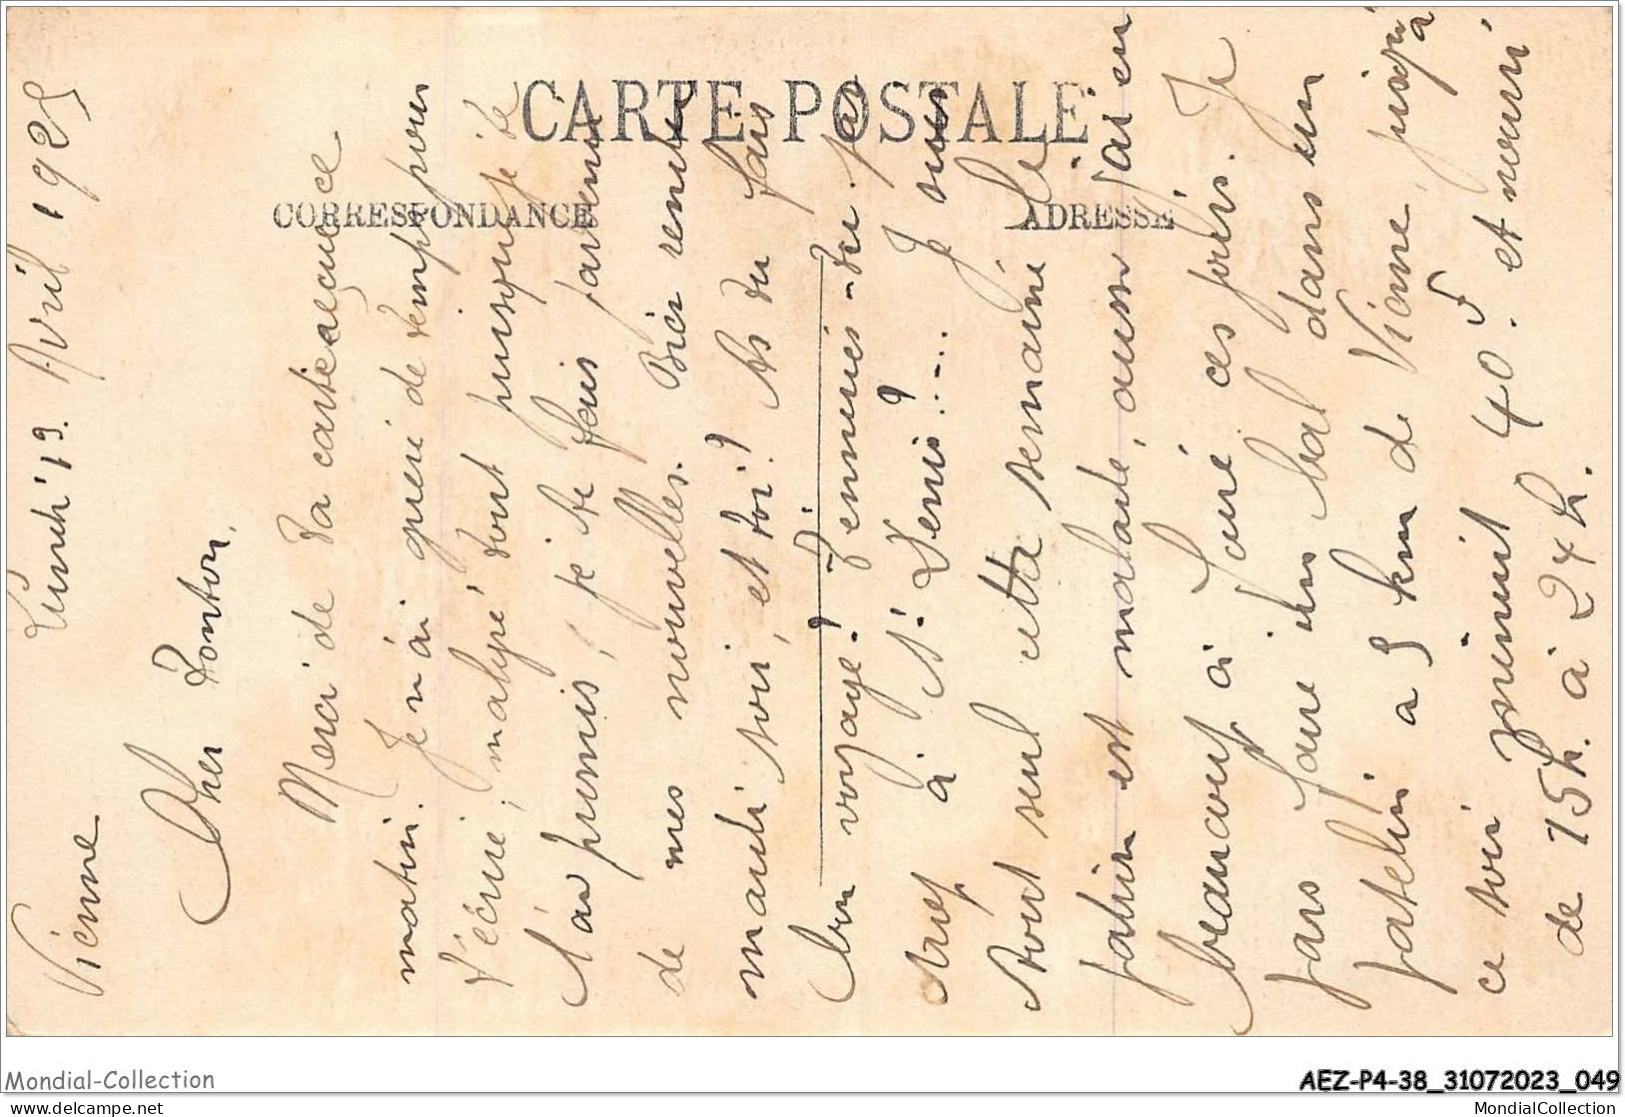 CARTE POSTALE
CORRESPONDANCE
ADRESSE
Vienne Lundi 13 Avril 1925
Cher Tonton,
Merci de ta carte reçue ce
matin. Je n'ai guère de temps pour
t'écrire, malgré tout puisque je te
l'ai promis, je te fais parvenir
de mes nouvelles. Bien rentré
mardi soir, et toi? As tu fais
bon voyage? T'ennuies-tu pas
trop à St. Denis?.... Je suis
tout seul cette semaine le
patron est malade, aussi j'ai en
beaucoup à faire ces jours. Je
pars faire un bal dans un
patelin à 5 km de Vienne, jusqu'à
ce soir minuit 40F. et nourri
de 15h. à 24h.
Mondial-Collection
AEZ-P4-38_31072023_049
www.delcampe.net
MondialCollection